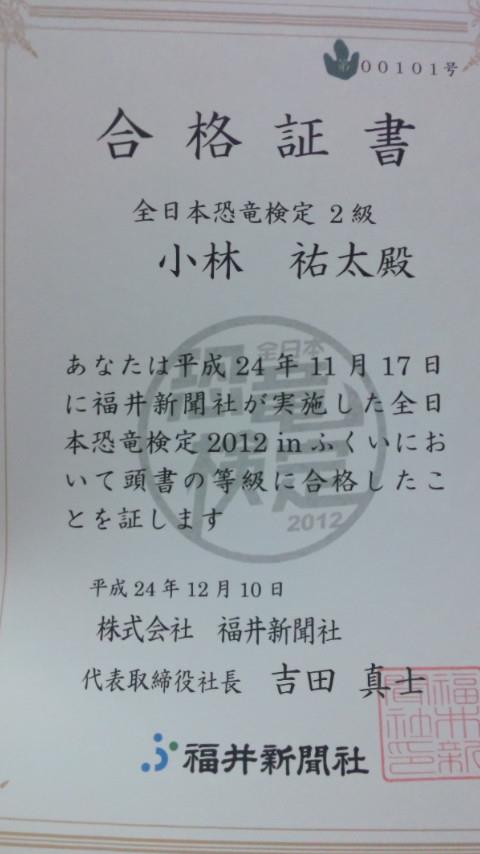 第００１０１号
合格証書
全日本恐竜検定 2級
小林　祐太殿
あなたは平成24年11月17日
に福井新聞社が実施した全日
本恐竜検定2012 in ふくいにお
いて頭書の等級に合格したこ
とを証します
全日本
恐竜
検定
2012
平成24年12月10日
株式会社　福井新聞社
代表取締役社長　吉田　真士
福井新聞社